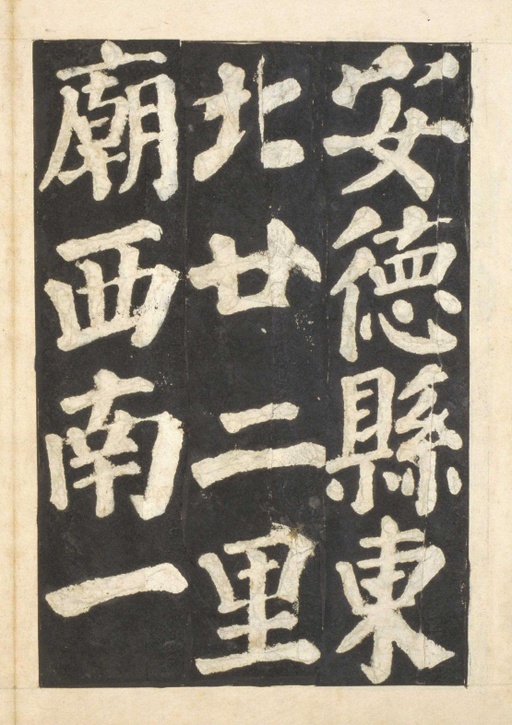 安德縣東
北廿二里
廟西南一